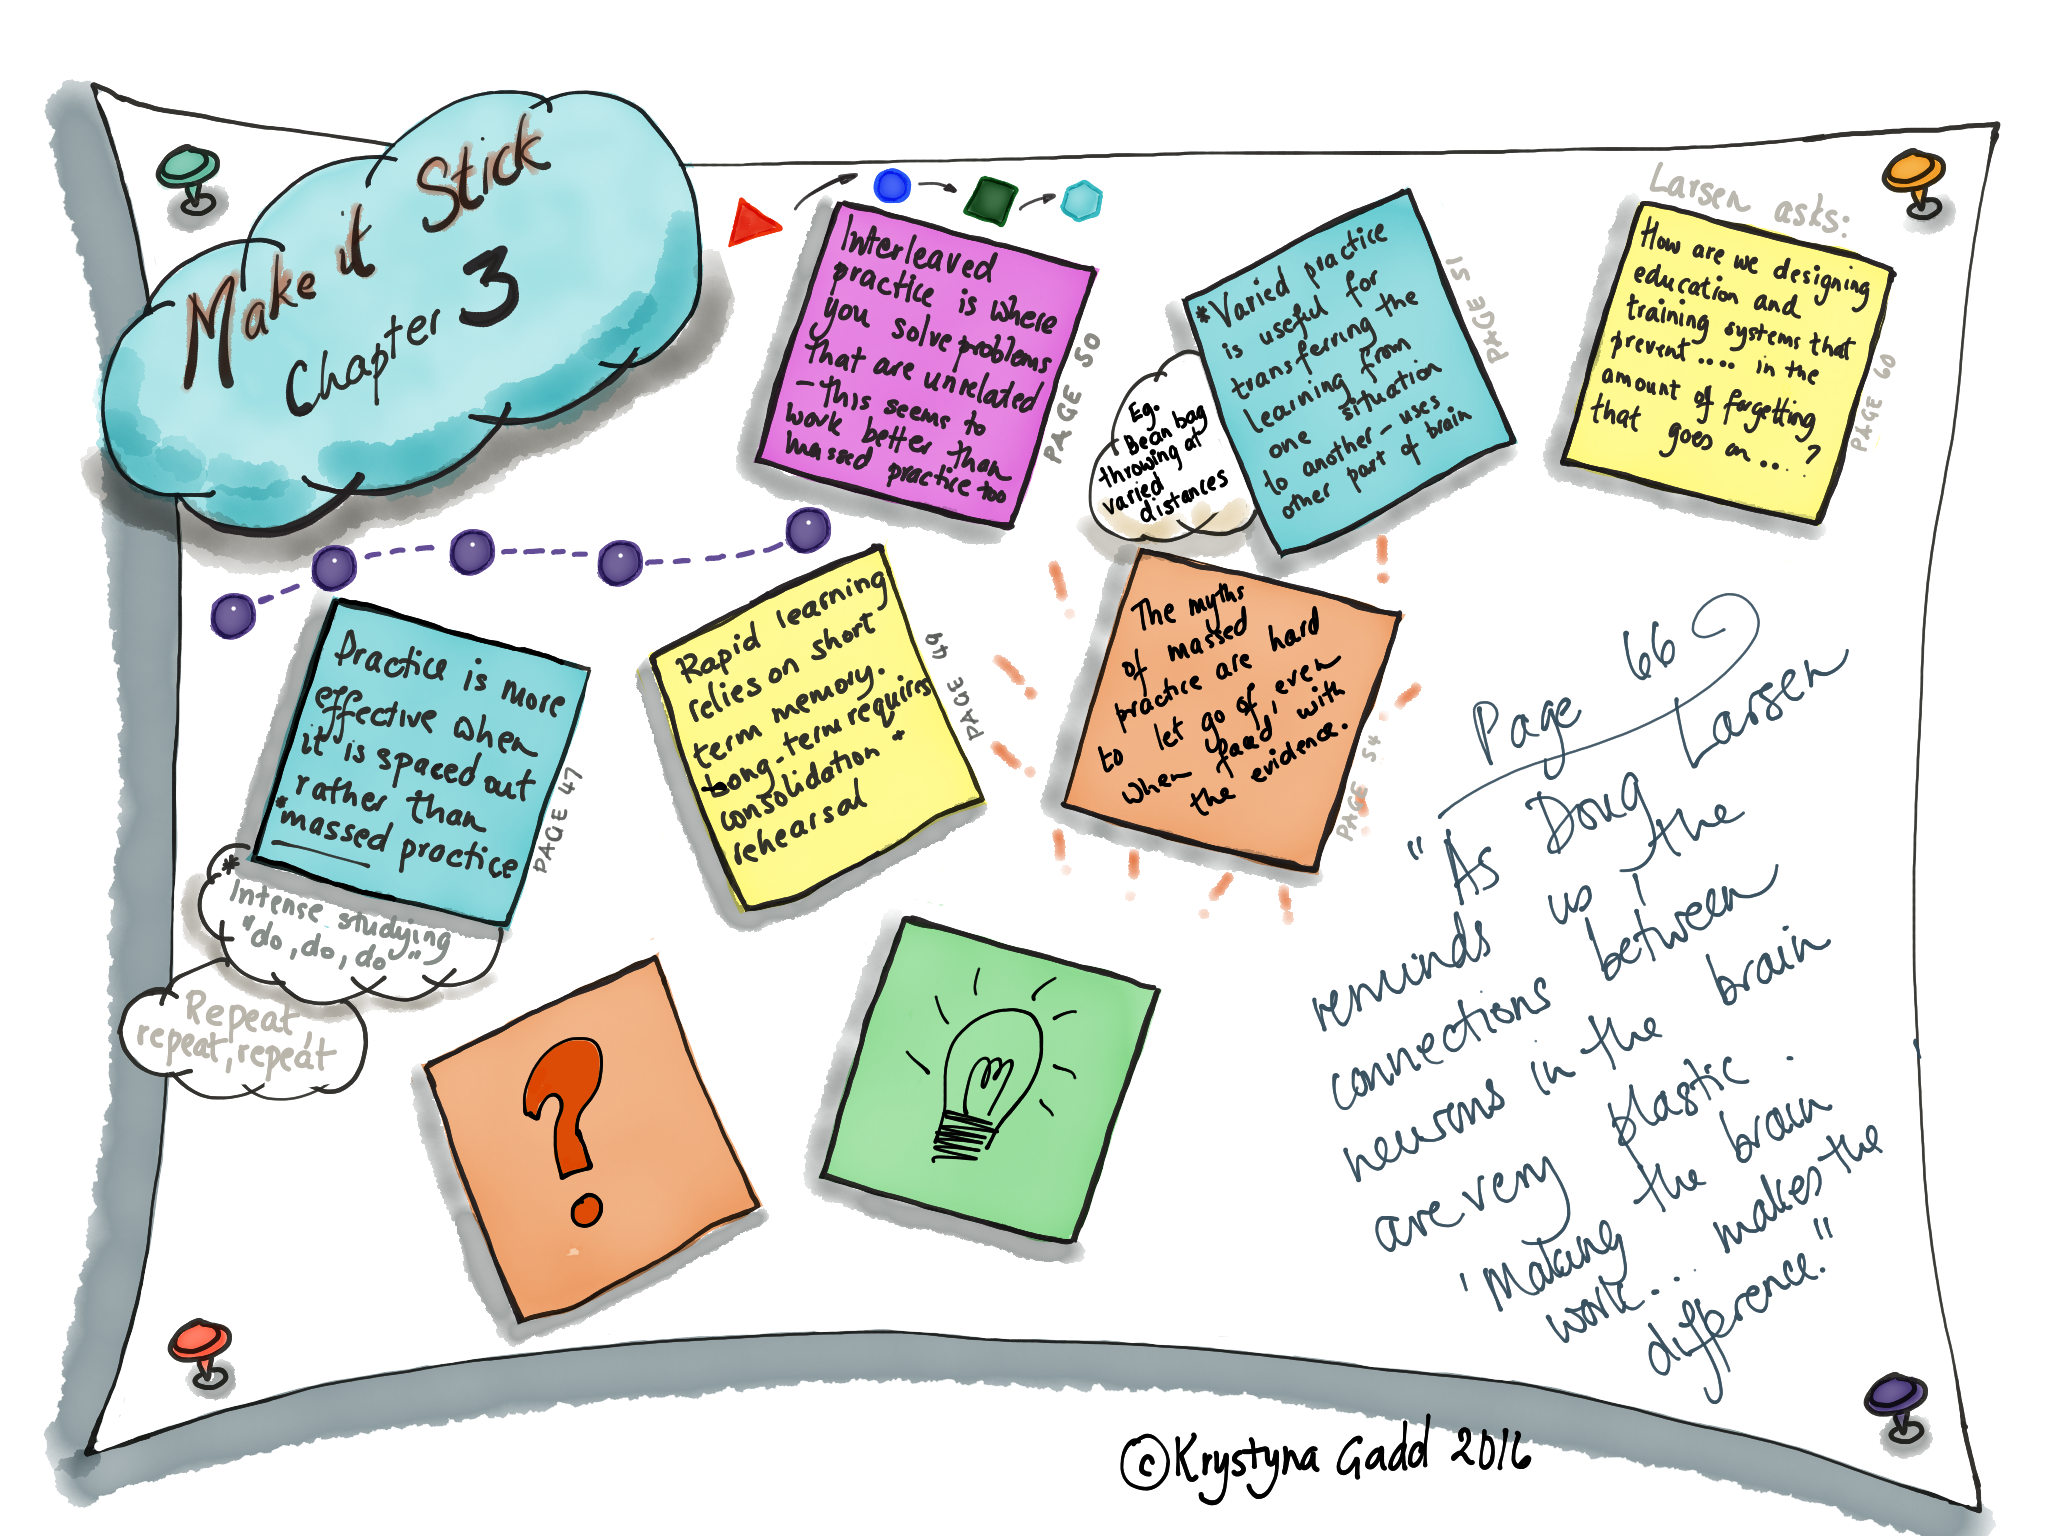 Make it Stick
Chapter 3
Interleaved
practice is where
you solve problems
that are unrelated
- this seems to
work better than
massed practice too
PAGE 50
*Varied practice
is useful for
transferring the
learning from
one situation
to another - uses
other part of brain
PAGE 51
Eg.
Bean bag
throwing at
varied
distances
Larsen asks:
How are we designing
education and
training systems that
prevent .... in the
amount of forgetting
that goes on ... ?
PAGE 60
Practice is more
effective when
it is spaced out
rather than
*massed practice
PAGE 47
*
Intense studying
"do, do, do"
Repeat,
repeat, repeat
Rapid learning
relies on short
term memory.
Long-term requires
consolidation +
rehearsal
PAGE 49
The myths
of massed
practice are hard
to let go of, even
when faced with
the evidence.
PAGE 54
?
Page 66
"As Doug Larsen
reminds us, the
connections between
neurons in the brain
are very plastic.
'Making the brain
work... makes the
difference."
©Krystyna Gadd 2016